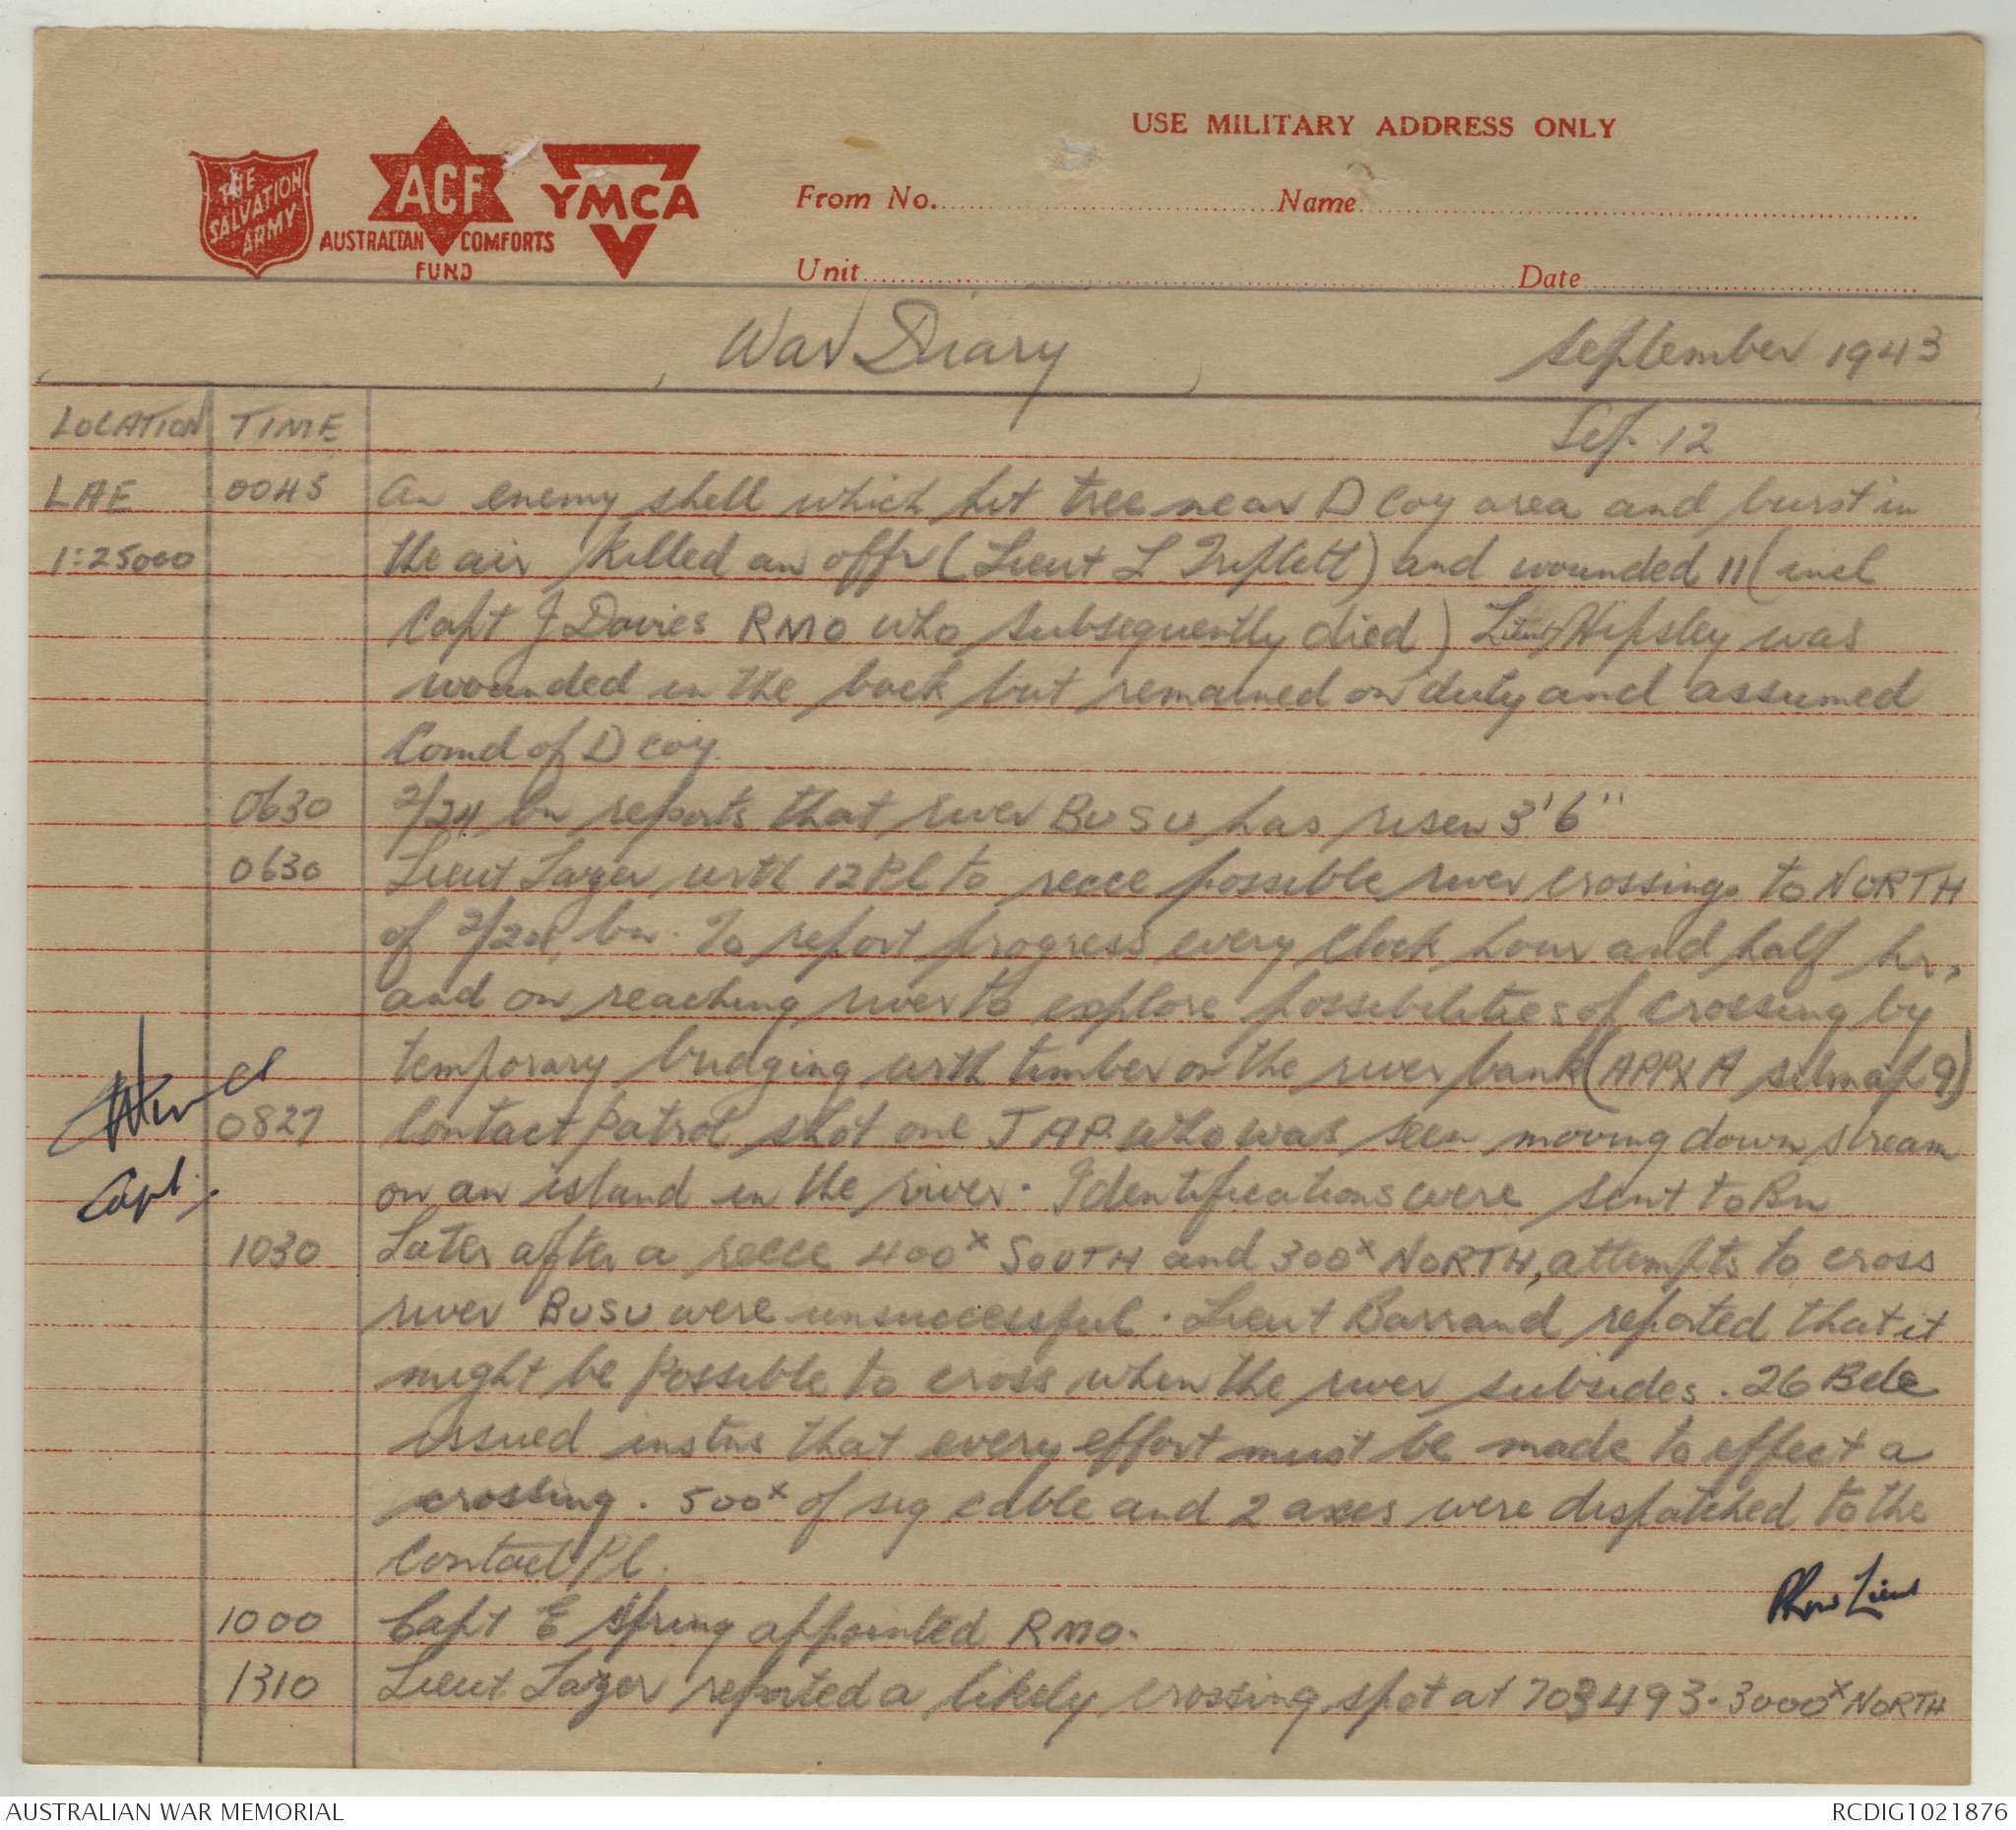 USE MILITARY ADDRESS ONLY
THE SALVATION ARMY
ACF
AUSTRALIAN COMFORTS FUND
YMCA
From No. Name
Unit Date
War Diary September 1943
LOCATION TIME Sep. 12
LAE 0045 An enemy shell which hit tree near D Coy area and burst in
1:25000 the air killed an offr (Lieut L Triplett) and wounded 11 (incl
Capt J Davies RMO who subsequently died) Lieut Hipsley was
wounded in the back but remained on duty and assumed
Comd of D coy.
0630 2/24 bn reports that river BUSU has risen 3'6"
0630 Lieut with 12 Pl to recce possible river crossings to NORTH
of 2/24 bn. To report progress every clock hour and half hr,
and on reaching river to explore possibilities of crossing by
temporary bridging with timber on the river bank (APPX A 9)
0827 Contact Patrol shot one JAP. who was seen moving down stream
on an island in the river. Identifications were sent to Bn
Capt.
1030 Later after a recce 400x SOUTH and 300x NORTH, attempts to cross
river BUSU were unsuccessful. Lieut Barrand reported that it
might be possible to cross when the river subsides. 26 Bde
issued instns that every effort must be made to effect a
crossing. 500x of sig cable and 2 axes were dispatched to the
Contact Pl.
Lieut
1000 Capt E Spring appointed RMO.
1310 Lieut reported a likely crossing spot at 703493. 3000x NORTH
AUSTRALIAN WAR MEMORIAL RCDIG1021876